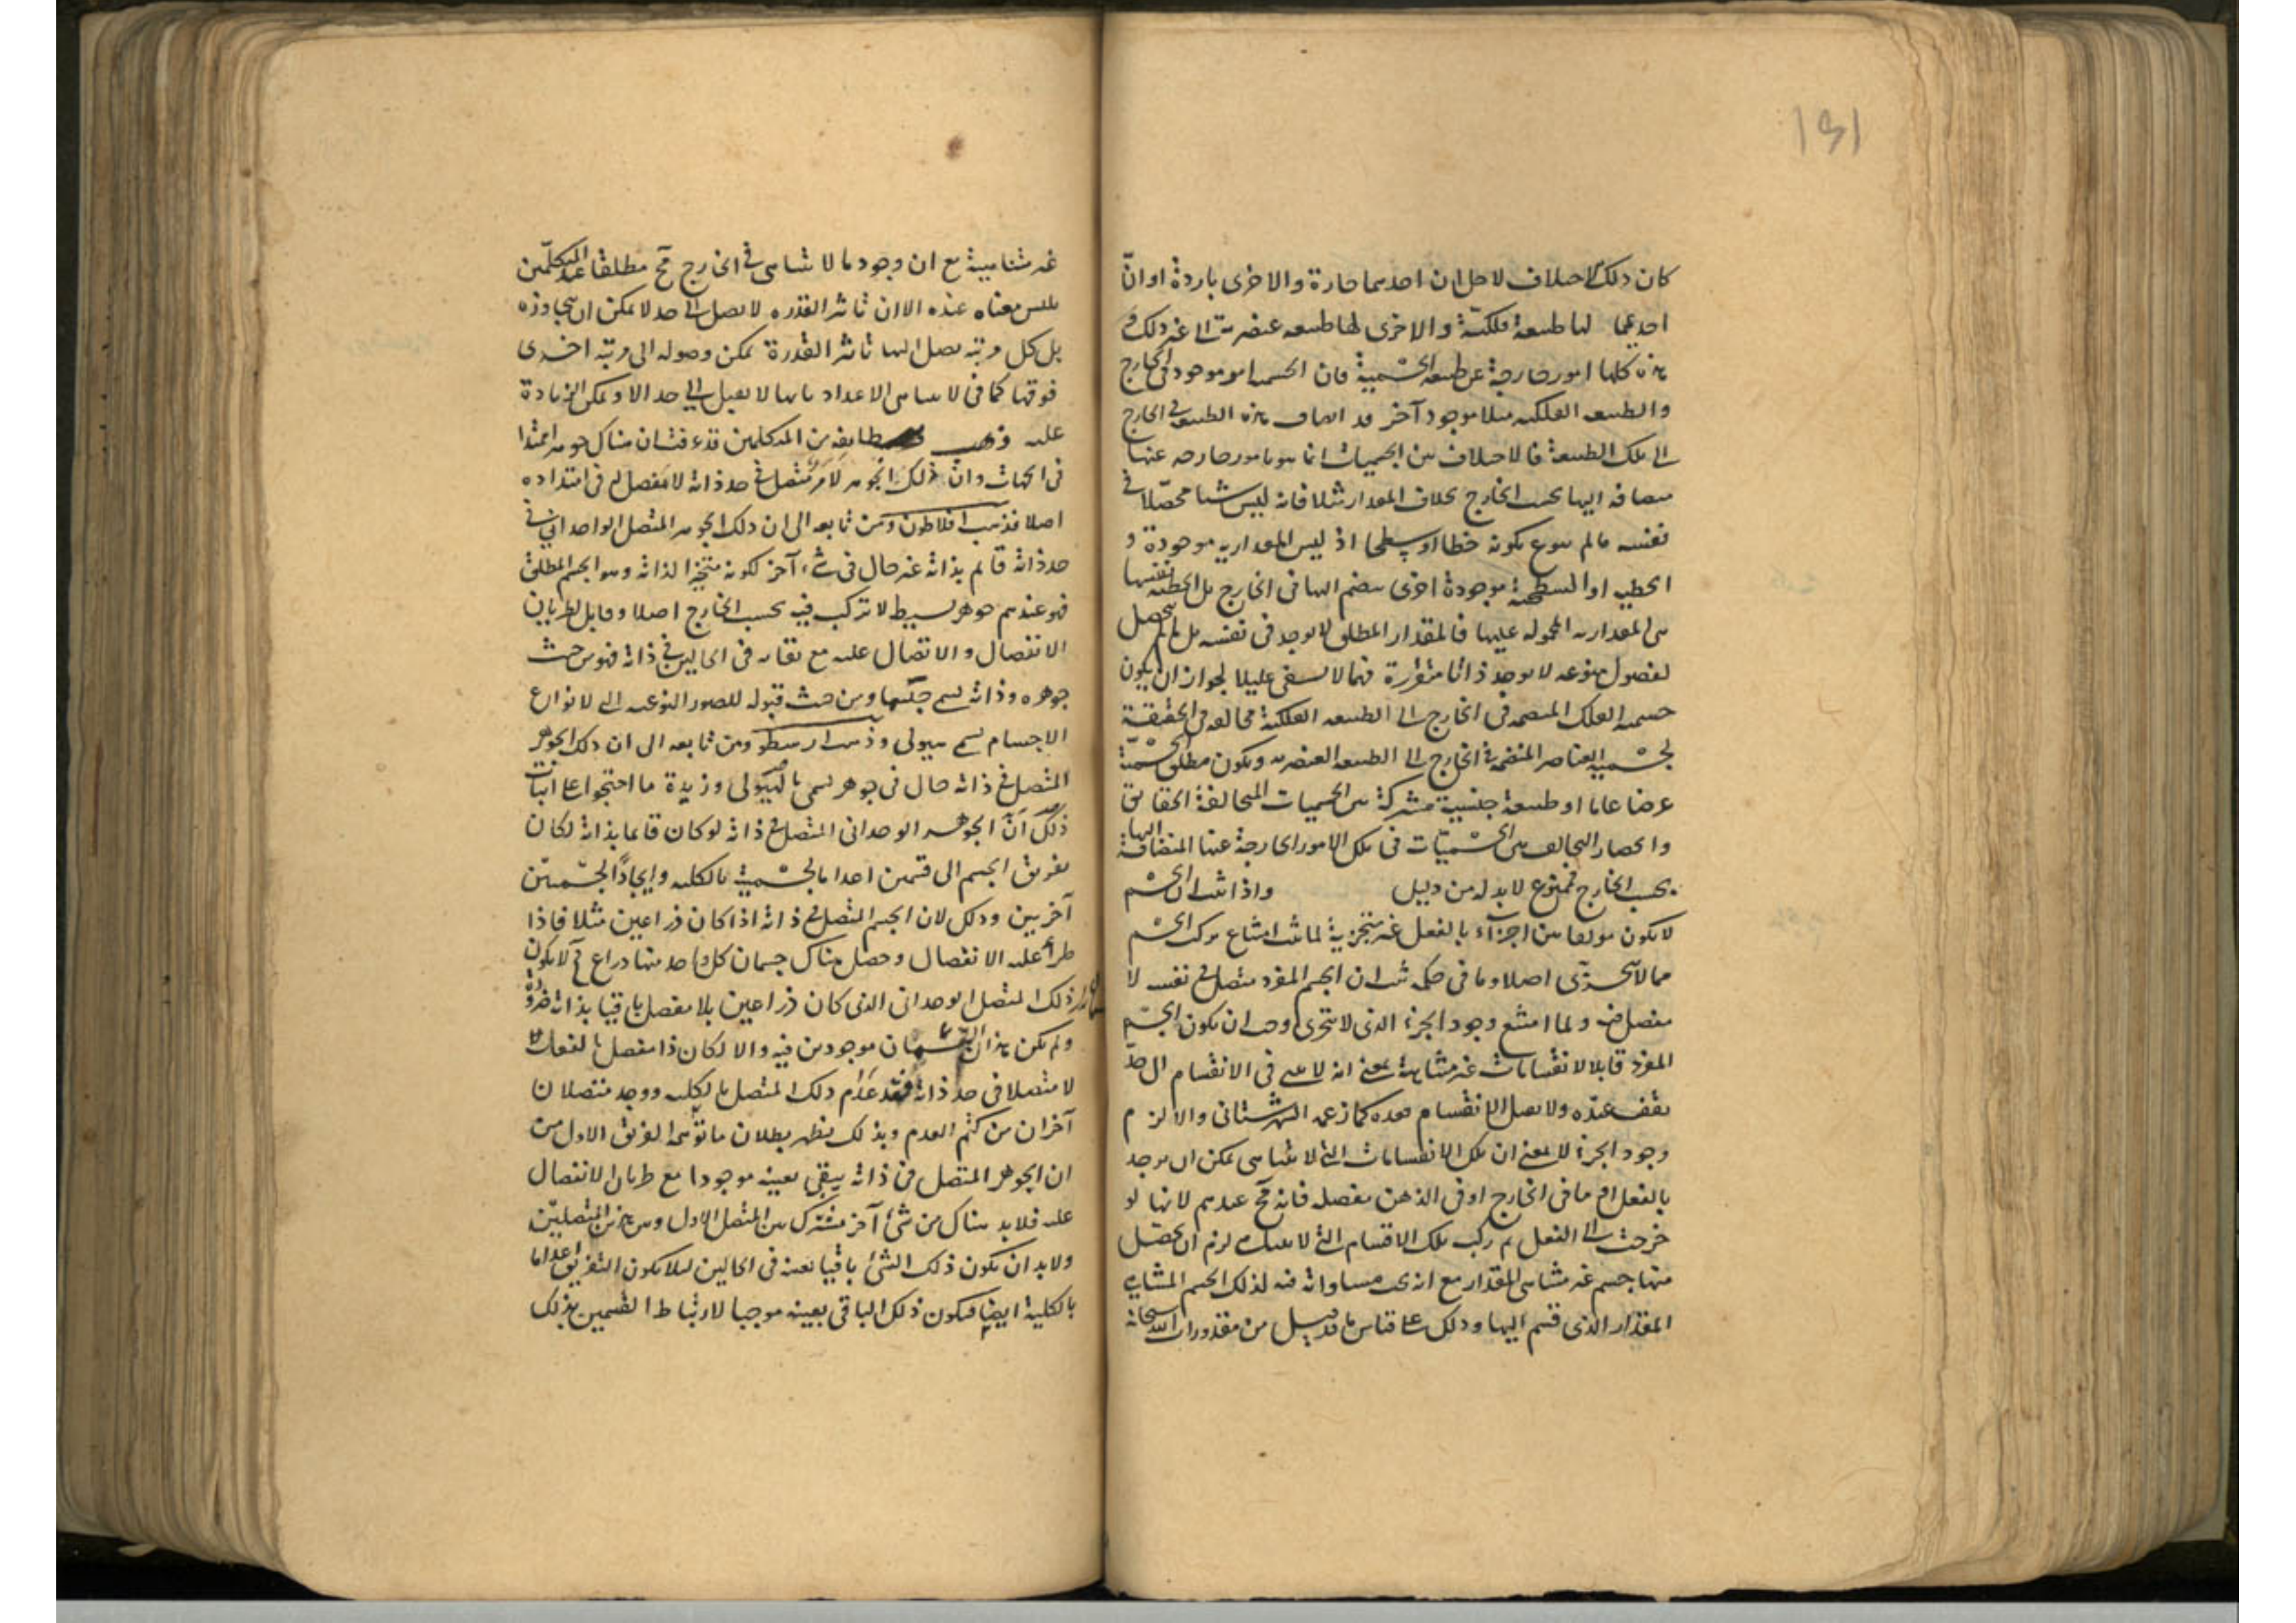 ١٤١
كان ذلك الاختلاف لاجل ان احدهما حارة والاخرى باردة او انّ
احدهما لها طبيعة فلكيّة والاخرى لها طبيعة عنصرية الى غير ذلك و
هذه كلها امور خارجة عن طبيعة الجسمية فان الجسمية امر موجود في الخارج
والطبيعة الفلكية مثلا موجود آخر قد انضاف هذه الطبيعة في الخارج
الى تلك الطبيعة فالاختلاف بين الجسميات انما هو بامور خارجة عنها
مضافة اليها بحسب الخارج بخلاف المقدار مثلا فانه ليس شيئا محصّلا في
نفسه ما لم يتنوع بكونه خطا او سطحا اذ ليس المقدارية موجودة و
الخطية او السطحية موجودة اخرى ينضم اليها في الخارج بل الخطية نفسها
هي المقدارية المحمولة عليها فالمقدار المطلق لا يوجد في نفسه بل ما لم يتحصل
بفصول منوعة لا يوجد ذاتا متقررة فيما لا يشفي عليلا لجواز ان يكون
جسمية الفلك المنضمة في الخارج الى الطبيعة الفلكية مخالفة في الحقيقة
لجسمية العناصر المنضمة في الخارج الى الطبيعة العنصرية ويكون مطلق الجسميّة
عرضا عاما او طبيعة جنسية مشتركة بين الجسميات المتخالفة الحقايق
وانحصار التخالف بين الجسميّات في تلك الامور الخارجة عنها المنضافة اليها
بحسب الخارج ممنوع لا بد له من دليل واذا ثبت ان الجسم
لا يكون مؤلفا من اجزاء بالفعل غير متجزية لما ثبت امتناع تركب الجسم
مما لا يتجزّى اصلا وما في حكمه ثبت ان الجسم المفرد متصل في نفسه لا
مفصل فيه ولما امتنع وجود الجزء الذي لا يتجزى وجب ان يكون الجسم
المفرد قابلا لانقسامات غير متناهية بمعنى انه لا ينتهي في الانقسام الى حدّ
يقف عنده ولا يصل الانقسام بعده كما زعمه الشهرستاني والا لزم
وجود الجزء لا بمعنى ان تلك الانقسامات التي لا تتناهى يمكن ان يوجد
بالفعل اما في الخارج او في الذهن مفصلة فانه مح عندهم لانها لو
خرجت الى الفعل ثم ركب تلك الاقسام التي لا تتناهى لزم ان يحصل
منها جسم غير متناهي المقدار مع انه يجب مساواته فيه لذلك الجسم المتناهي
المقدار الذي قسم اليها وذلك على قياس ما قد قيل من مقدورات الله سبحانه
غير متناهية مع ان وجود ما لا يتناهى في الخارج مح مطلقا عند المتكلّمين
فليس معناه عنده الا ان تاثير القدرة لا يصل الى حد لا يمكن ان يتجاوزه
بل كل مرتبة يصل اليها تاثير القدرة يمكن وصوله الى مرتبة اخرى
فوقها كما في لا تناهي الاعداد فانها لا يصل الى حد الا ويمكن الزيادة
عليه وذهب طايفة من المتكلمين قد عرفت ان هناك جوهرا ممتدا
في الجهات وانّ ذلك الجوهر متّصل في حد ذاته لا مفصل له في امتداده
اصلا فذهب افلاطون ومن تابعه الى ان ذلك الجوهر المتصل الواحداني في
حد ذاته قائم بذاته غير حال في شيء آخر لكونه متحيزا لذاته وهو الجسم المطلق
فهو عندهم جوهر بسيط لا تركب فيه بحسب الخارج اصلا وقابل لطريان
الانفصال والاتصال عليه مع بقائه في الحالين في ذاته فهو من حيث
جوهره وذاته يسمى جسما ومن حيث قبوله للصور النوعية التي لانواع
الاجسام يسمى هيولى وذهب ارسطو ومن تابعه الى ان ذلك الجوهر
المتصل في ذاته حال في جوهر يسمى بالهيولى وزبدة ما احتجوا على اثبات
ذلك انّ الجوهر الوحداني المتصل في ذاته لو كان قائما بذاته لكان
تفريق الجسم الى قسمين اعداما لجسمية بالكلية وايجادا لجسميّتين
آخريين وذلك لان الجسم المتصل في ذاته اذا كان ذراعين مثلا فاذا
طرأ عليه الانفصال وحصل هناك جسمان كل واحد منهما ذراع فح لا يكون
ذلك المتصل الوحداني الذي كان ذراعين بلا مفصل باقيا بذاته ضرورة
ولم يكن هذان القسمان موجودين فيه والا لكان ذا مفصل بالفعل
لا متصلا في حد ذاته فقد عدم ذلك المتصل بالكلية ووجد متصلان
آخران من كتم العدم وبذلك يظهر بطلان ما توهمه الفريق الاول من
ان الجوهر المتصل في ذاته يبقى بعينه موجودا مع طريان الانفصال
عليه فلا بد هناك من شئ آخر مشترك بين المتصل الاول وبين هذين المتصلين
ولا بد ان يكون ذلك الشئ باقيا بعينه في الحالين لئلا يكون التفريق اعداما
بالكلية ايضا فيكون ذلك الباقي بعينه موجبا لارتباط القسمين بذلك